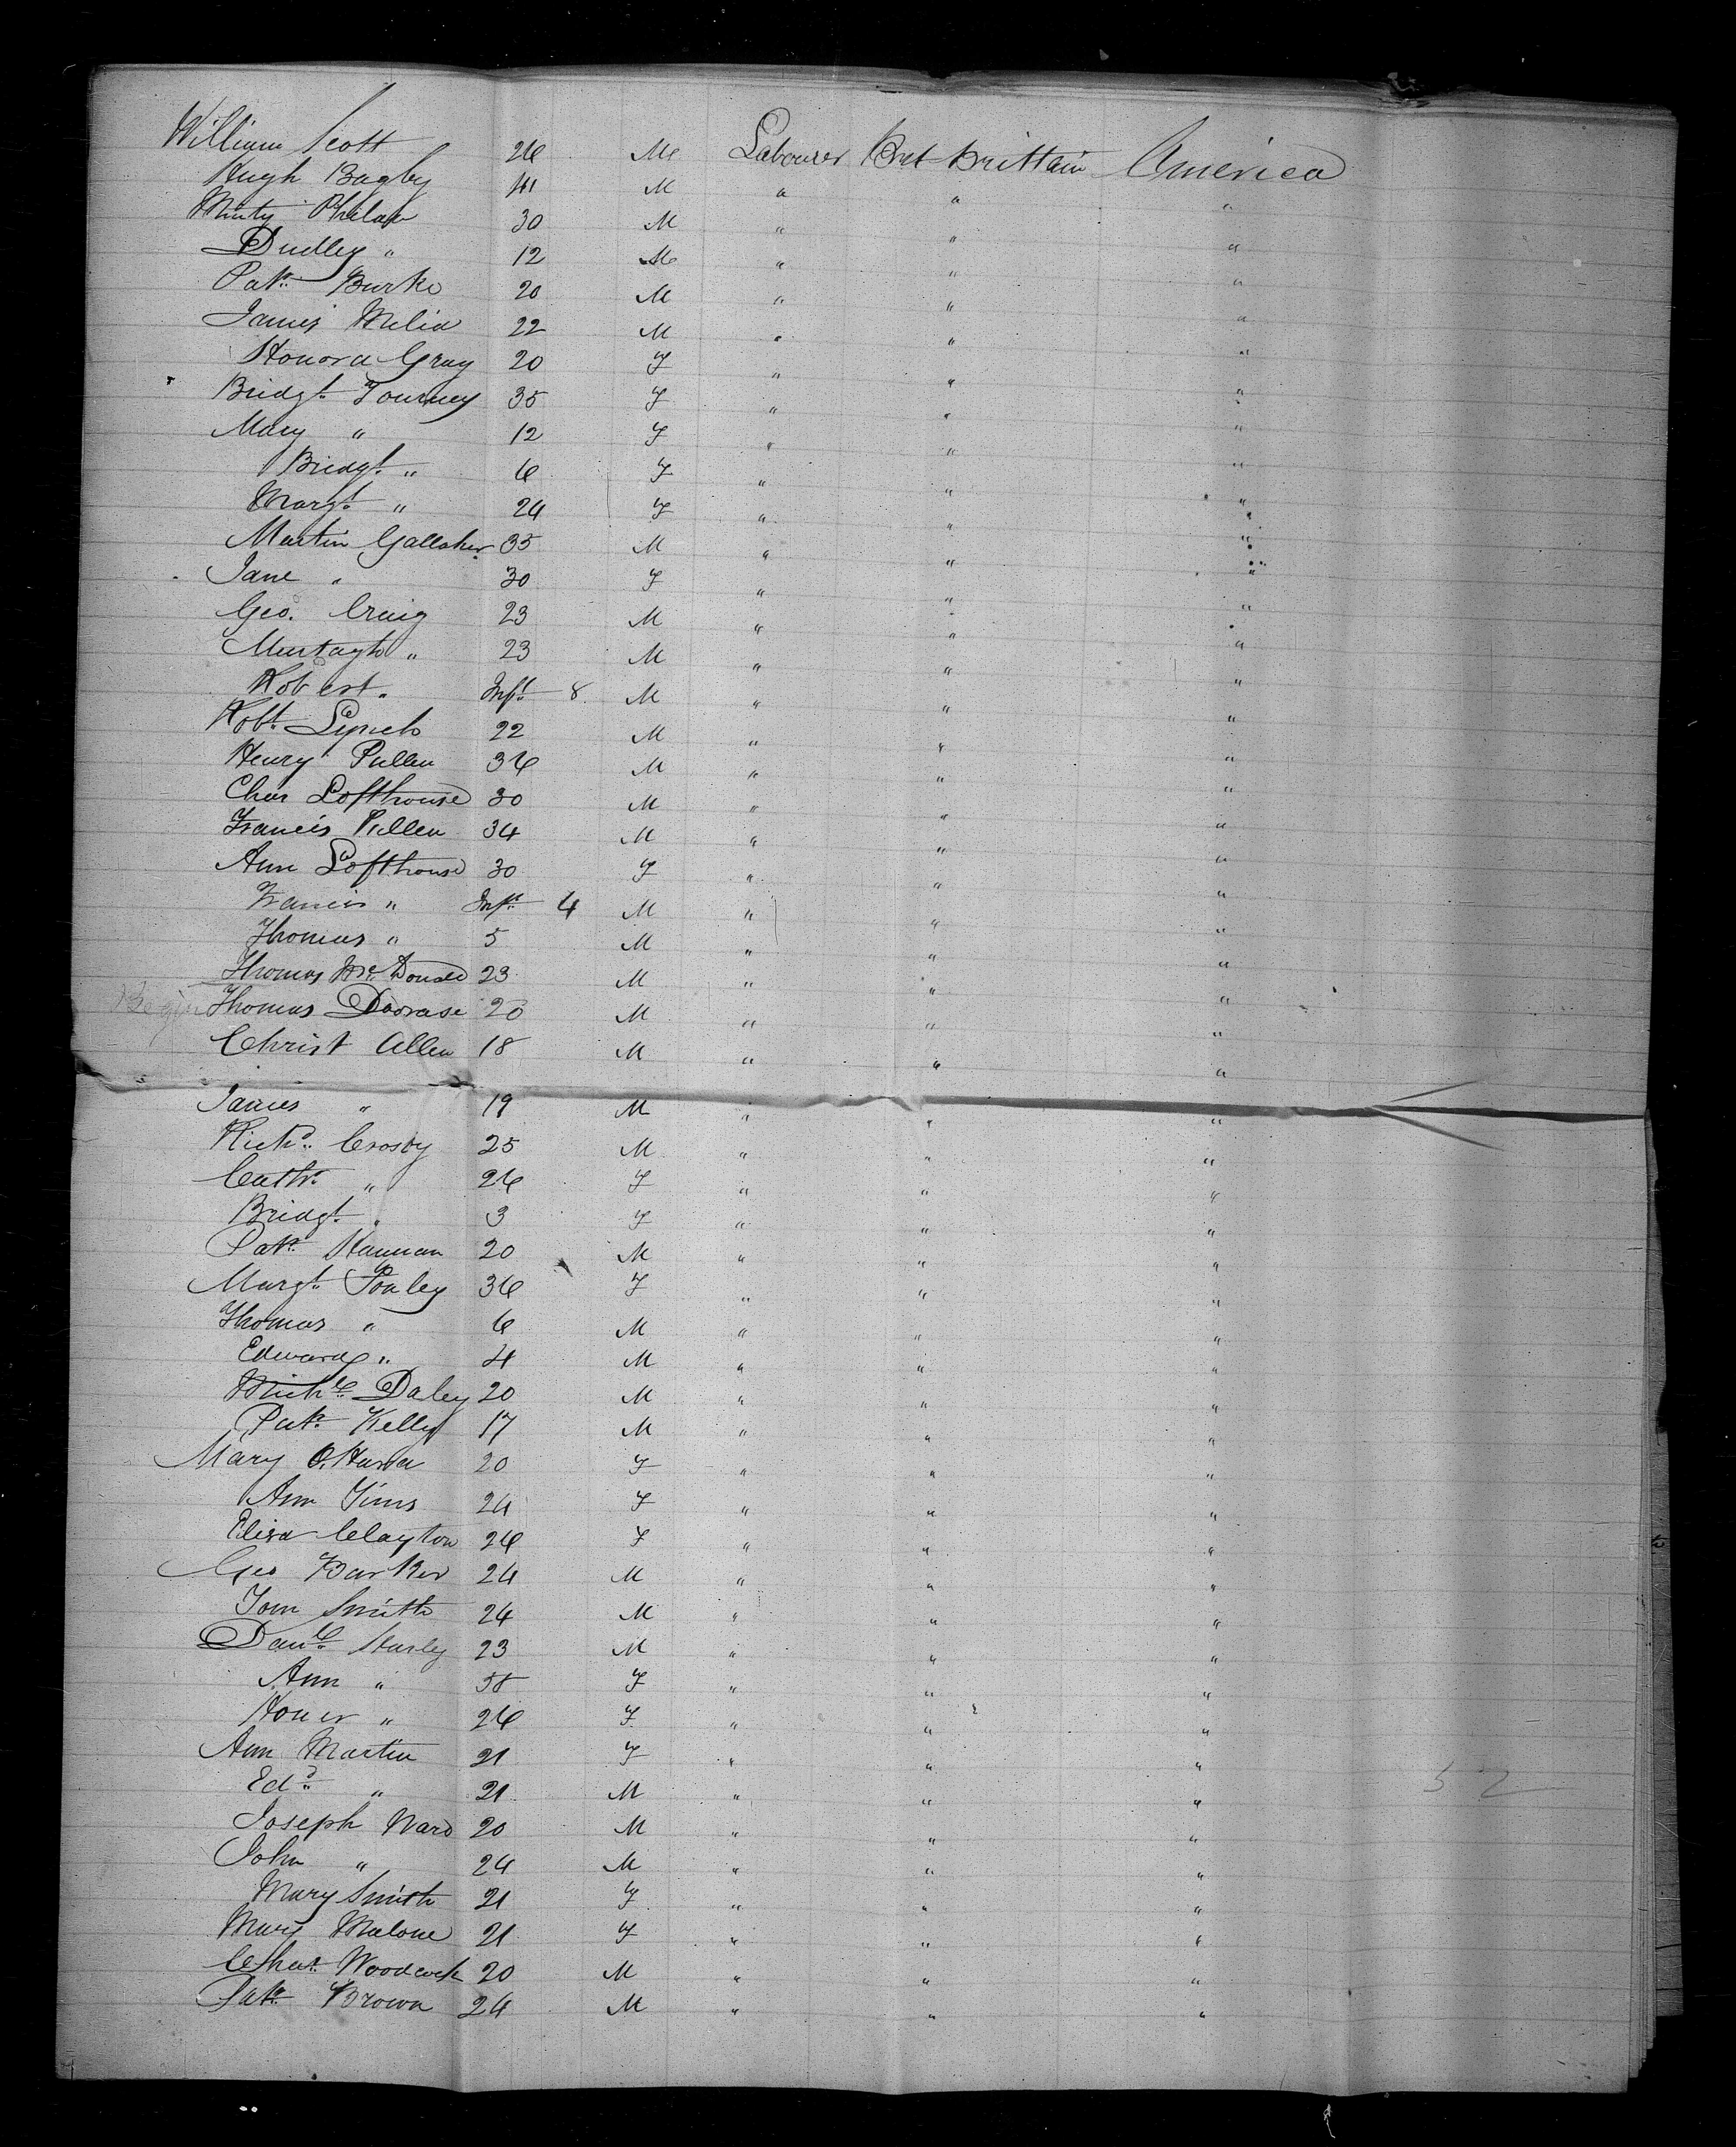 William Scott 26 M Labourer Bret Brittain America
Hugh Bagby 41 M " " "
Minty Phelan 30 M " " "
Dudley " 12 M " " "
Patk. Burke 20 M " " "
James Melia 22 M " " "
Honora Gray 20 F " " "
Bridgt. Tourney 35 F " " "
Mary " 12 F " " "
Bridgt. " 6 F " " "
Margt. " 24 F " " "
Martin Gallaher 35 M " " "
Jane " 30 F " " "
Geo. Craig 23 M " " "
Murtagh " 23 M " " "
Robert " Inft. 8 M " " "
Robt. Lynch 22 M " " "
Henry Pullen 36 M " " "
Chas Lofthouse 30 M " " "
Francis Pullen 34 M " " "
Ann Lofthouse 30 F " " "
Francis " Inft. 4 M " " "
Thomas " 5 M " " "
Thomas McDonald 23 M " " "
Begin Thomas 20 M " " "
Christ Allen 18 M " " "
James " 19 M " " "
Richd. Crosby 25 M " " "
Cathr. " 26 F " " "
Bridgt. " 3 F " " "
Patk. Hannan 20 M " " "
Margt. 36 F " " "
Thomas " 6 M " " "
Edward " 4 M " " "
Michl. Daley 20 M " " "
Patk. Kelly 17 M " " "
Mary O.Hara 20 F " " "
Ann Tims 24 F " " "
Eliza Clayton 26 F " " "
Geo Barker 24 M " " "
Tom Smith 24 M " " "
Danl. Hurley 23 M " " "
Ann " F " " "
Honer " 26 F " " "
Ann Martin 21 F " " "
Edd. " 21 M " " " 52
Joseph Ward 20 M " " "
John " 24 M " " "
Mary Smith 21 F " " "
Mary Malone 21 F " " "
Chas. Woodcock 20 M " " "
Patk. Brown 24 M " " "